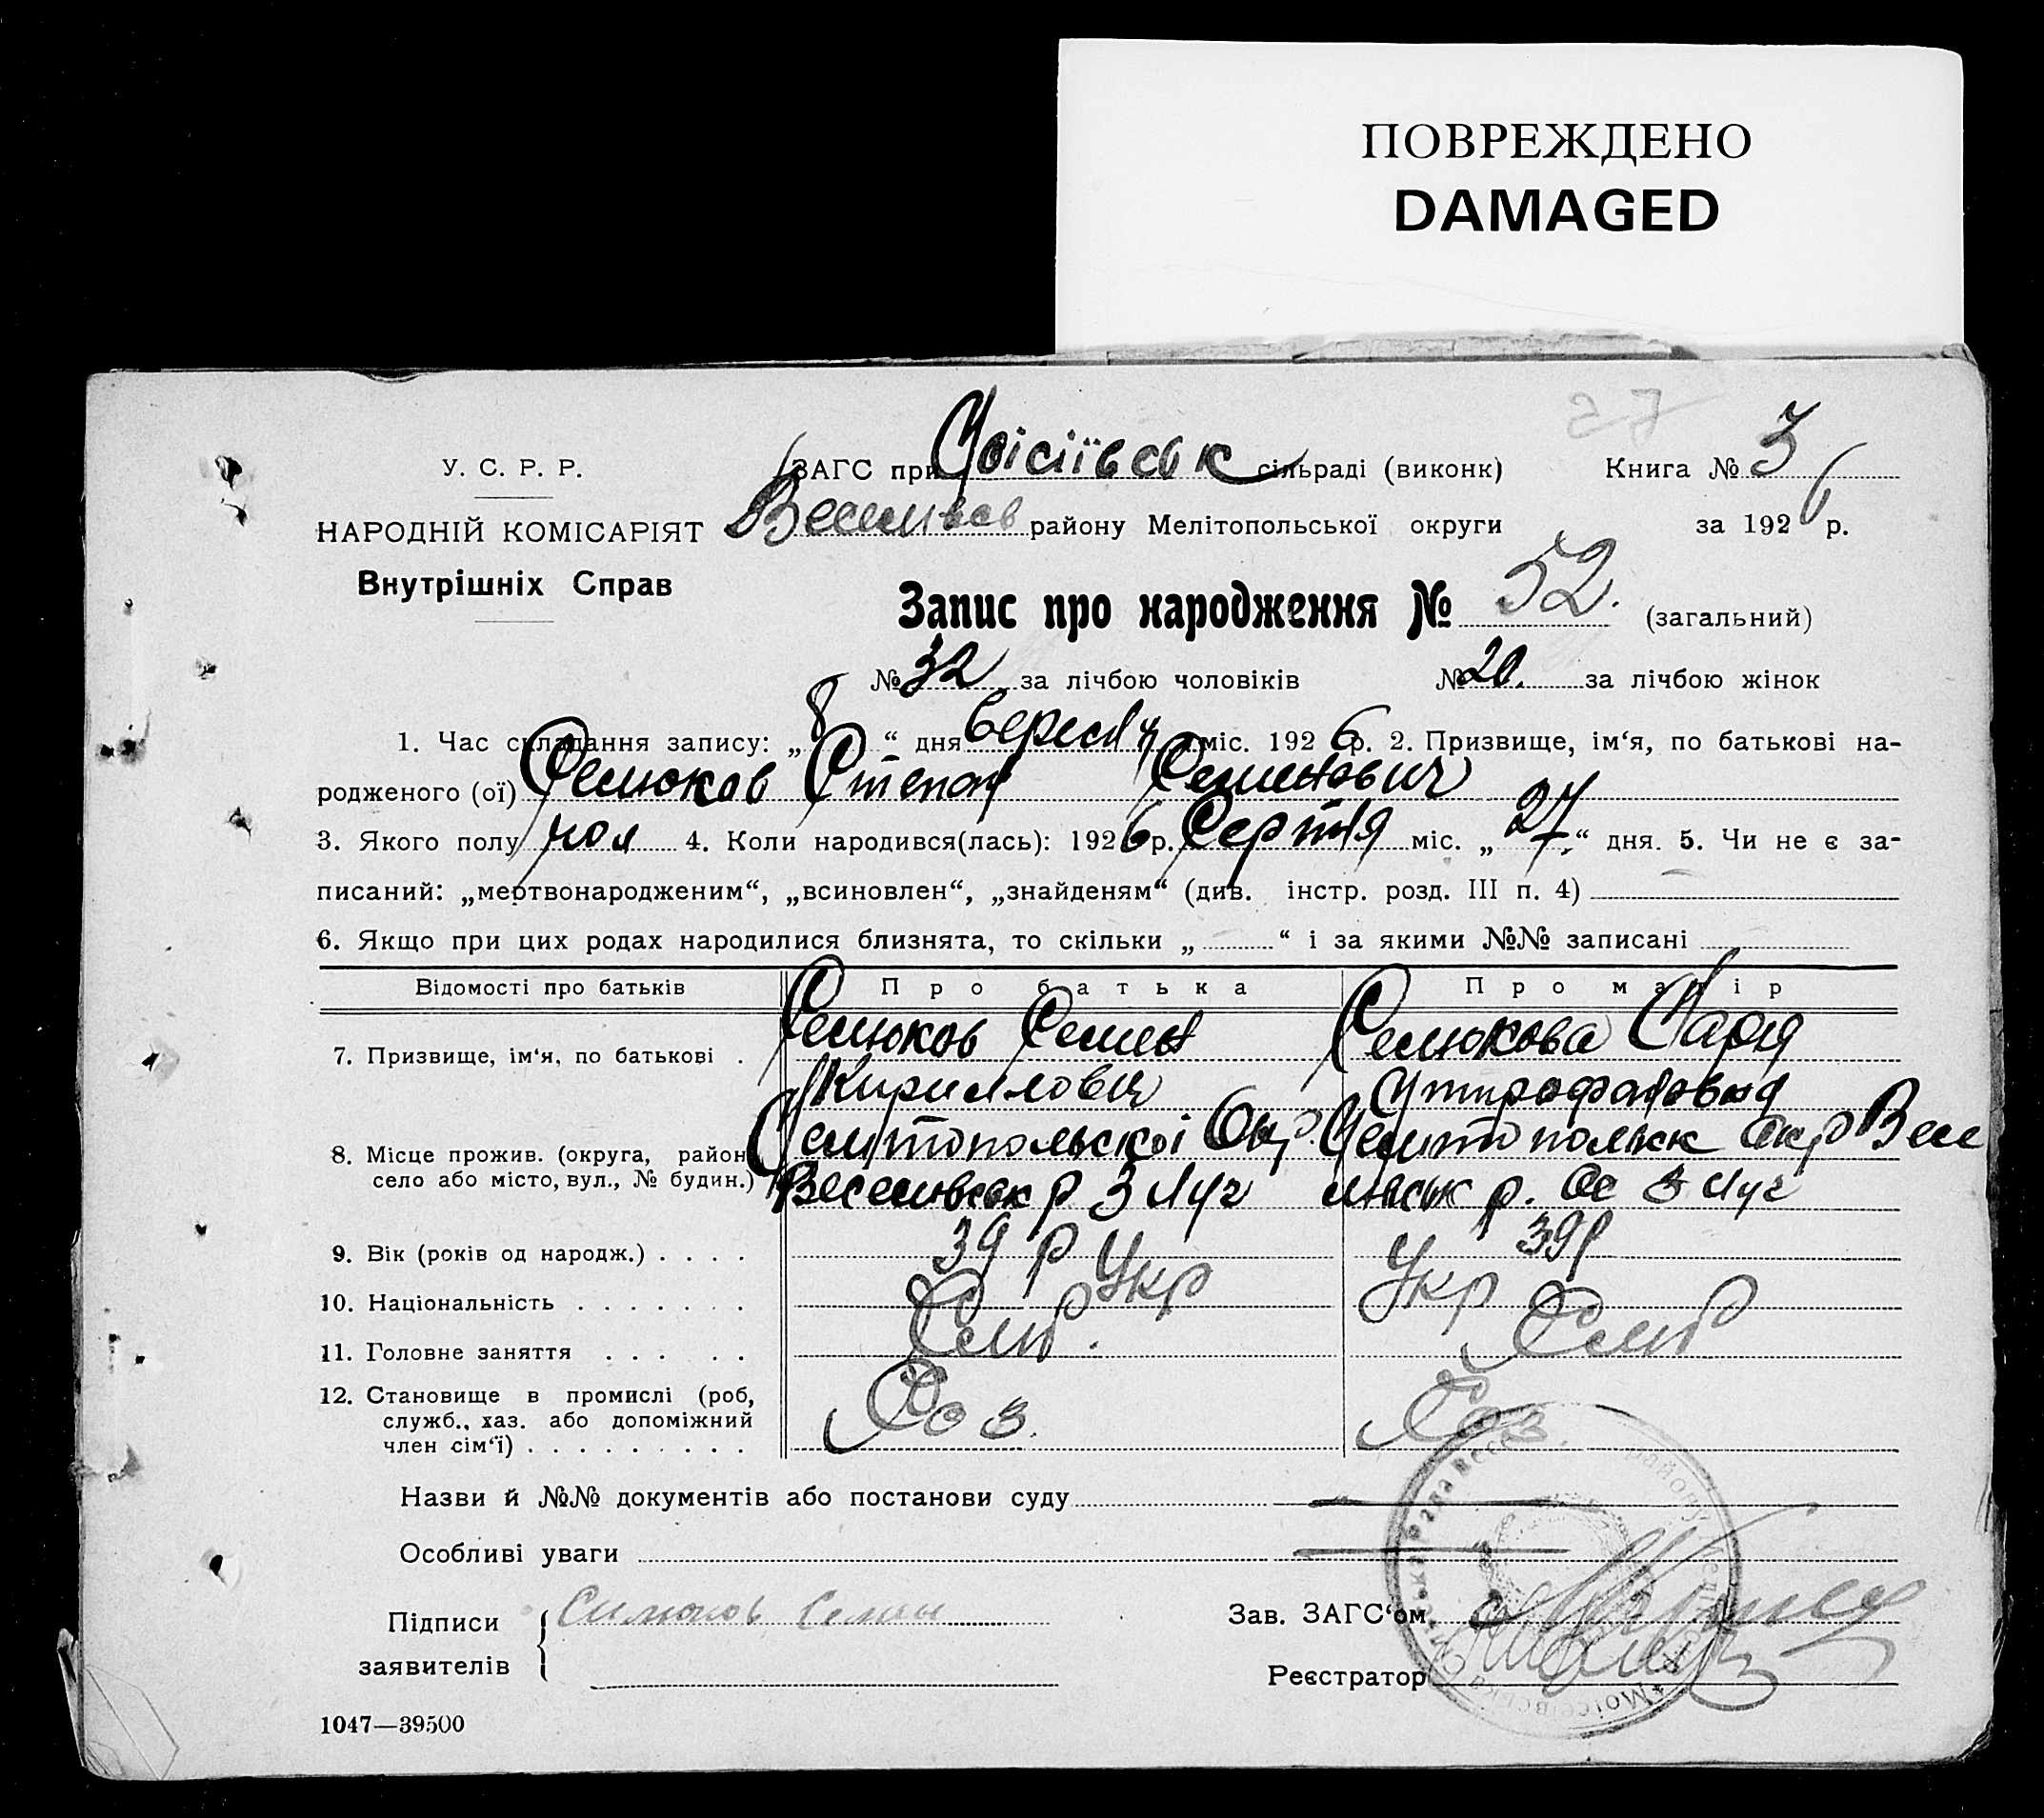 ПОВРЕЖДЕНО
DAMAGED
У. С. Р. Р.
НАРОДНІЙ КОМІСАРІЯТ
Внутрішніх Справ
ЗАГС при Моісіївськ сільраді (виконк) Книга № 3
Веселівсь району Мелітопольської округи за 1926 р.
Запис про народження № 52. (загальний)
№ 32 за лічбою чоловіків № 20. за лічбою жінок
1. Час складання запису: „8“ дня вересня міс. 1926 р. 2. Призвище, ім‘я, по батькові на-
родженого (ої) Селюков Степан Семенович
3. Якого полу чол 4. Коли народився(лась): 1926 р. Серпня міс. „27.“ дня. 5. Чи не є за-
писаний: „мертвонародженим“, „всиновлен“, „знайденям“ (див. інстр. розд. III п. 4)
6. Якщо при цих родах народилися близнята, то скільки „ “ і за якими №№ записані
Відомості про батьків Про батька Про матір
7. Призвище, ім‘я, по батькові . Селюков Семен Селюкова Мария
Кирилович Митрофановна
8. Місце прожив. (округа, район, Мелітопольскоі Окр. Мелітопольськ окр Весе
село або місто, вул., № будин.) Веселівськ р З Луг лівськ р. Ос З Луг
9. Вік (років од народж.) . . . . 39 р 39 р
10. Національність . . . . . . . Укр Укр
11. Головне заняття . . . . . Хліб. Хліб
12. Становище в промислі (роб,
служб., хаз. або допоміжний Хоз. Хоз.
член сім‘ї) . . . . . . . . .
Назви й №№ документів або постанови суду
Особливі уваги
Підписи Силюков Семен Зав. ЗАГС‘ом
заявителів Реєстратор
1047—39500